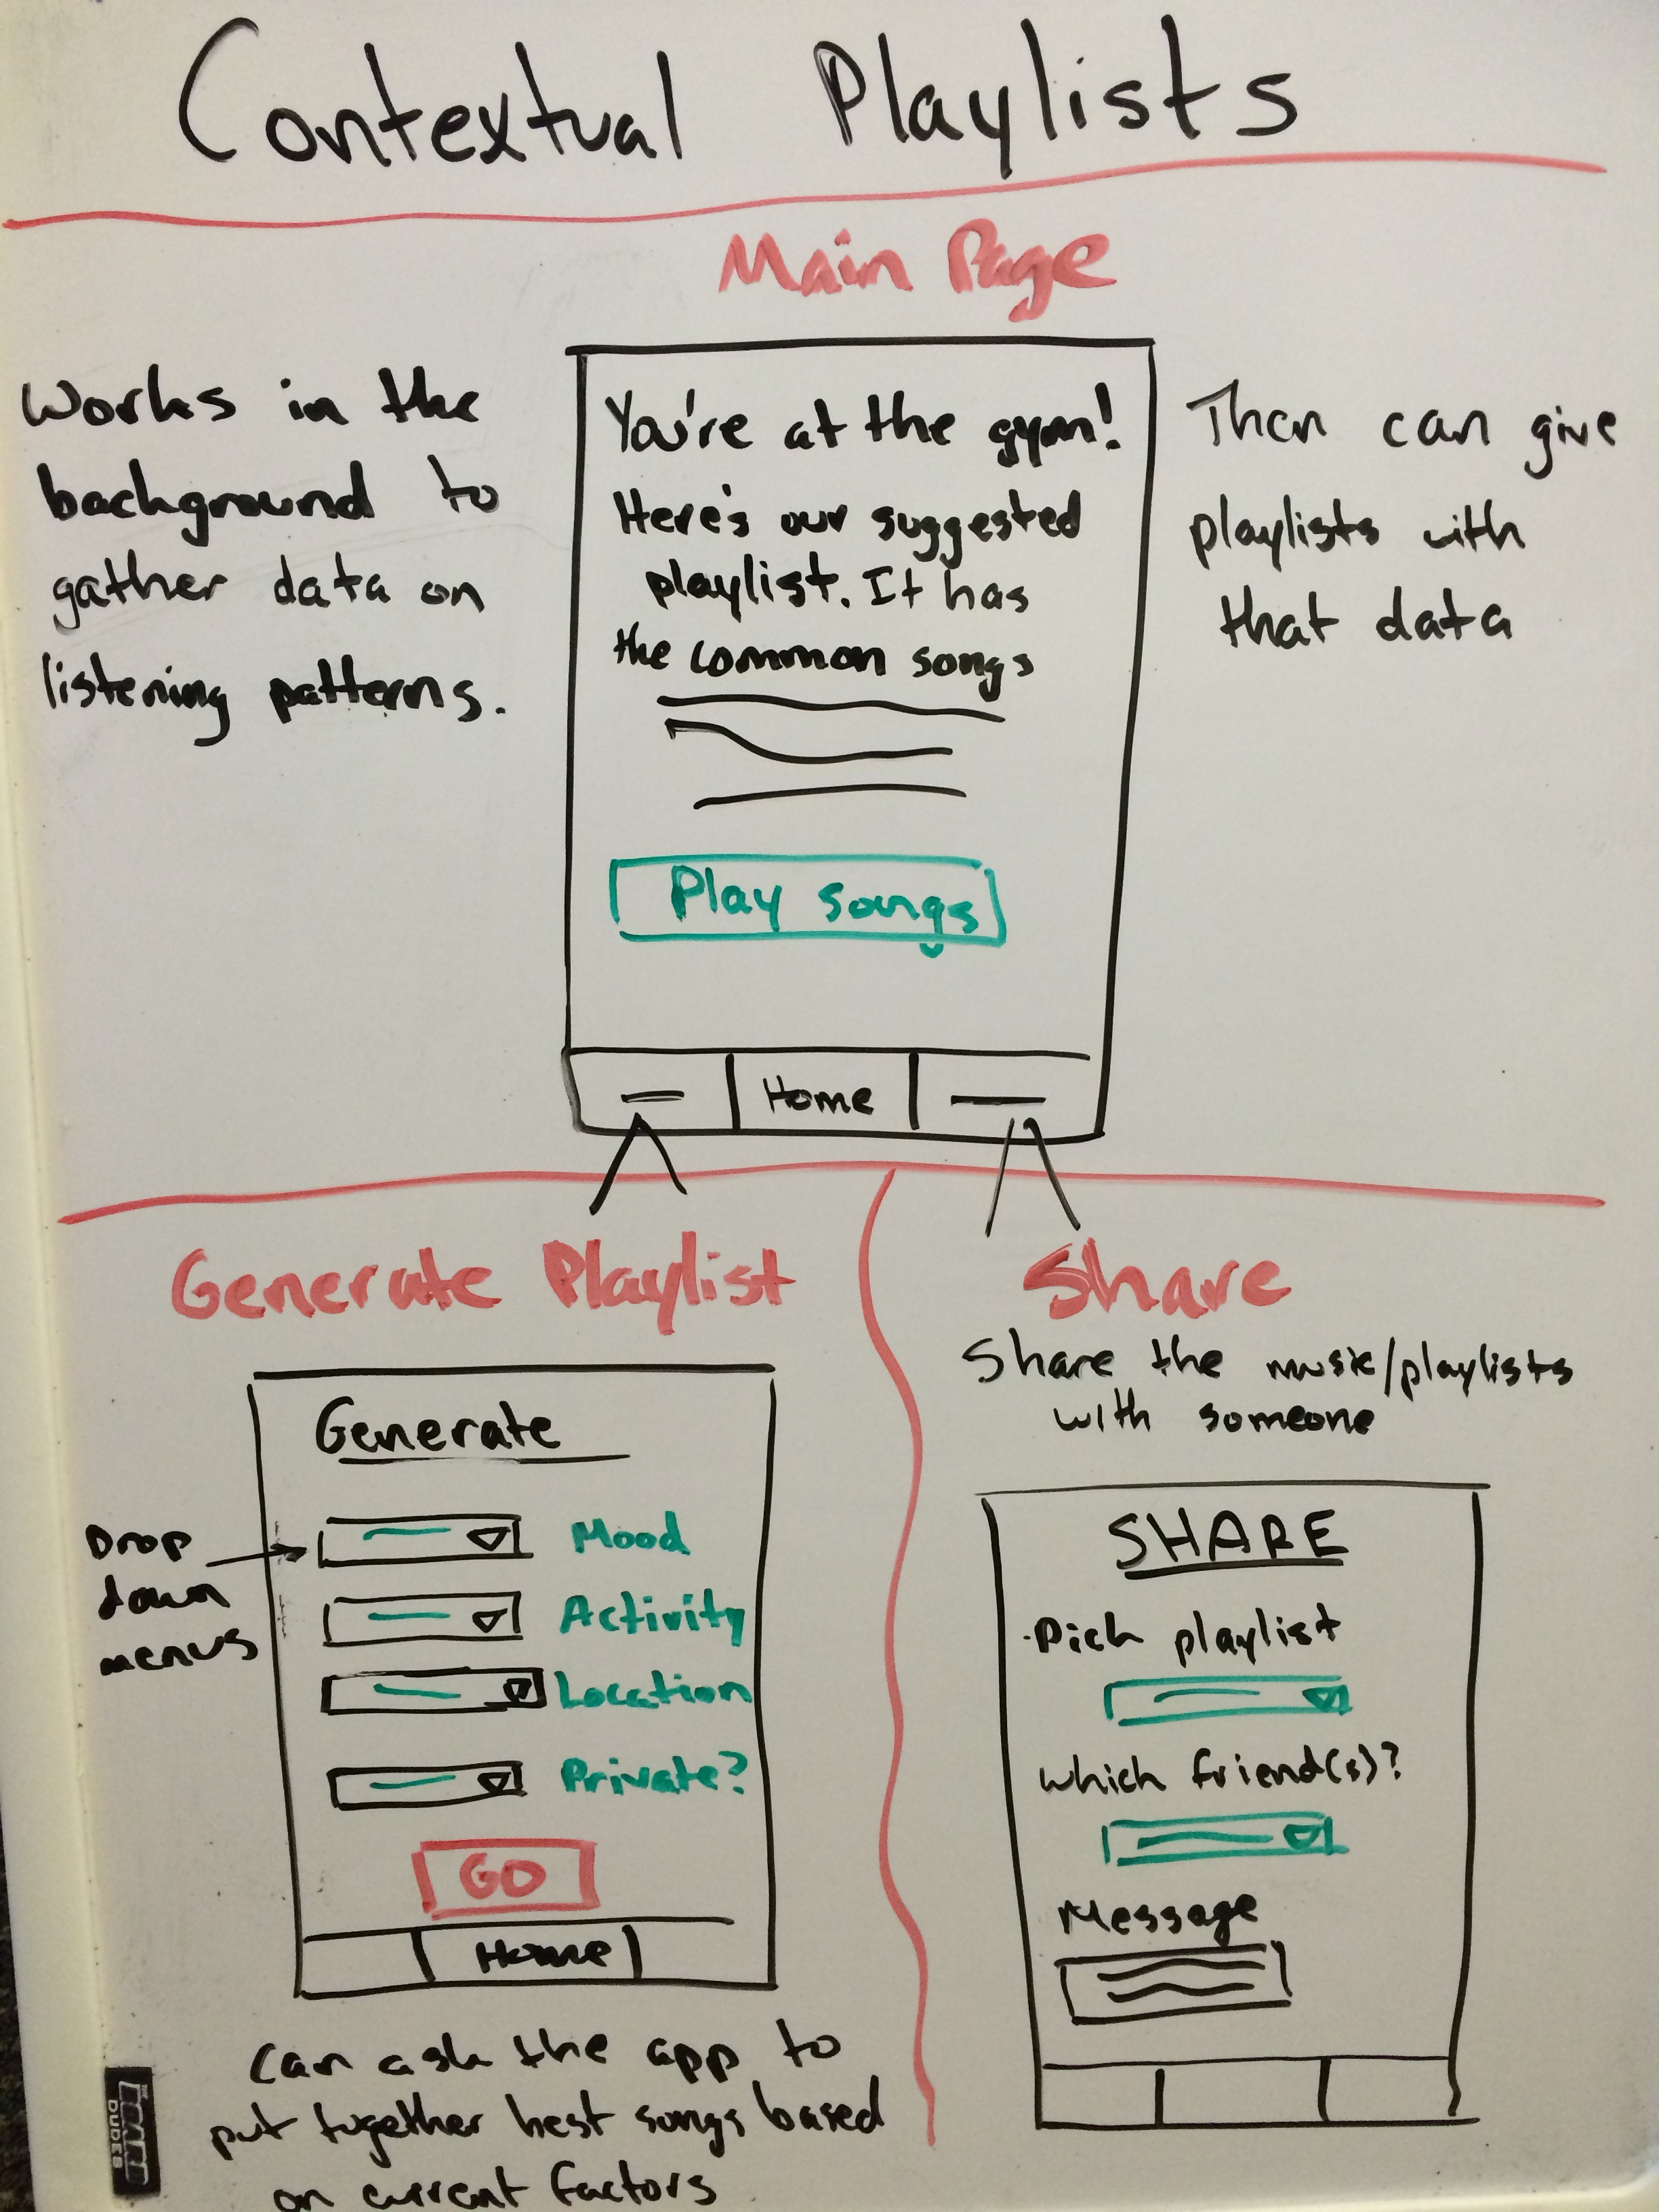 Contextual Playlists
Main Page
Works in the
background to
gather data on
listening patterns.
You're at the gym!
Here's our suggested
playlist. It has
the common songs
Play songs
Home
Then can give
playlists with
that data
Generate Playlist
Generate
Drop
down
menus
Mood
Activity
Location
Private?
GO
Home
Can ask the app to
put together best songs based
on current factors
Share
Share the music/playlists
with someone
SHARE
Pick playlist
Which friend(s)?
Message
THE
BOARD
DUDES